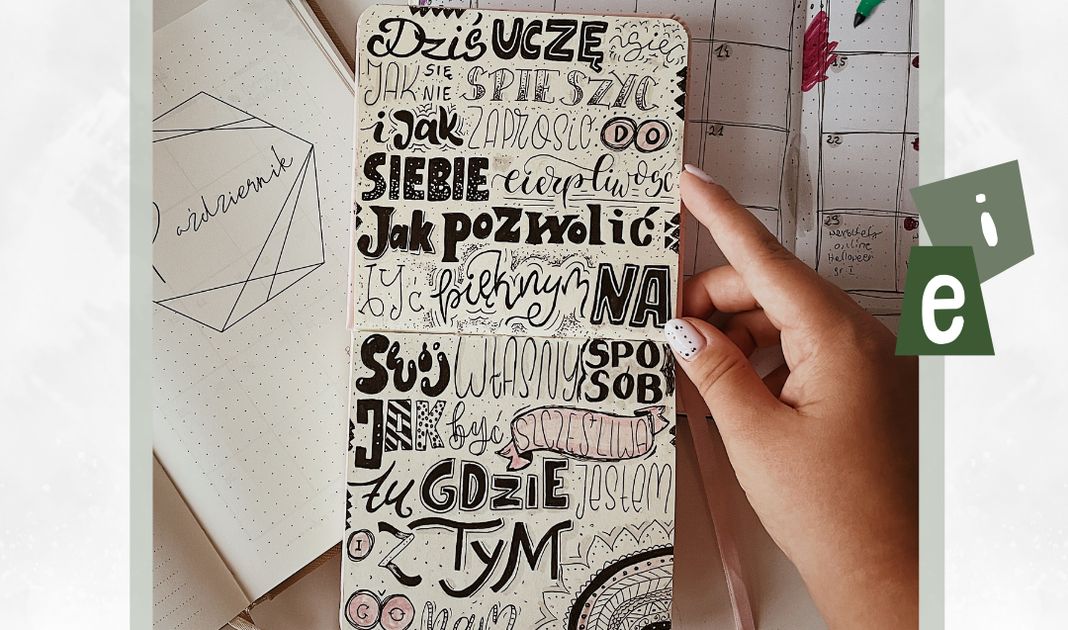 Dziś UCZĘ się
JAK SIĘ NIE ŚPIESZYĆ
i Jak ZAPROSIĆ DO
SIEBIE cierpliwość
Jak pozwolić
być pięknym NA
Swój WŁASNY SPOSOB
JAK być SZCZĘŚLIWĄ
tu GDZIE JESTEM
I Z TYM
CO mam
Październik
14
15
21
22
29
warsztaty
online
Halloween
gr. I
i
e